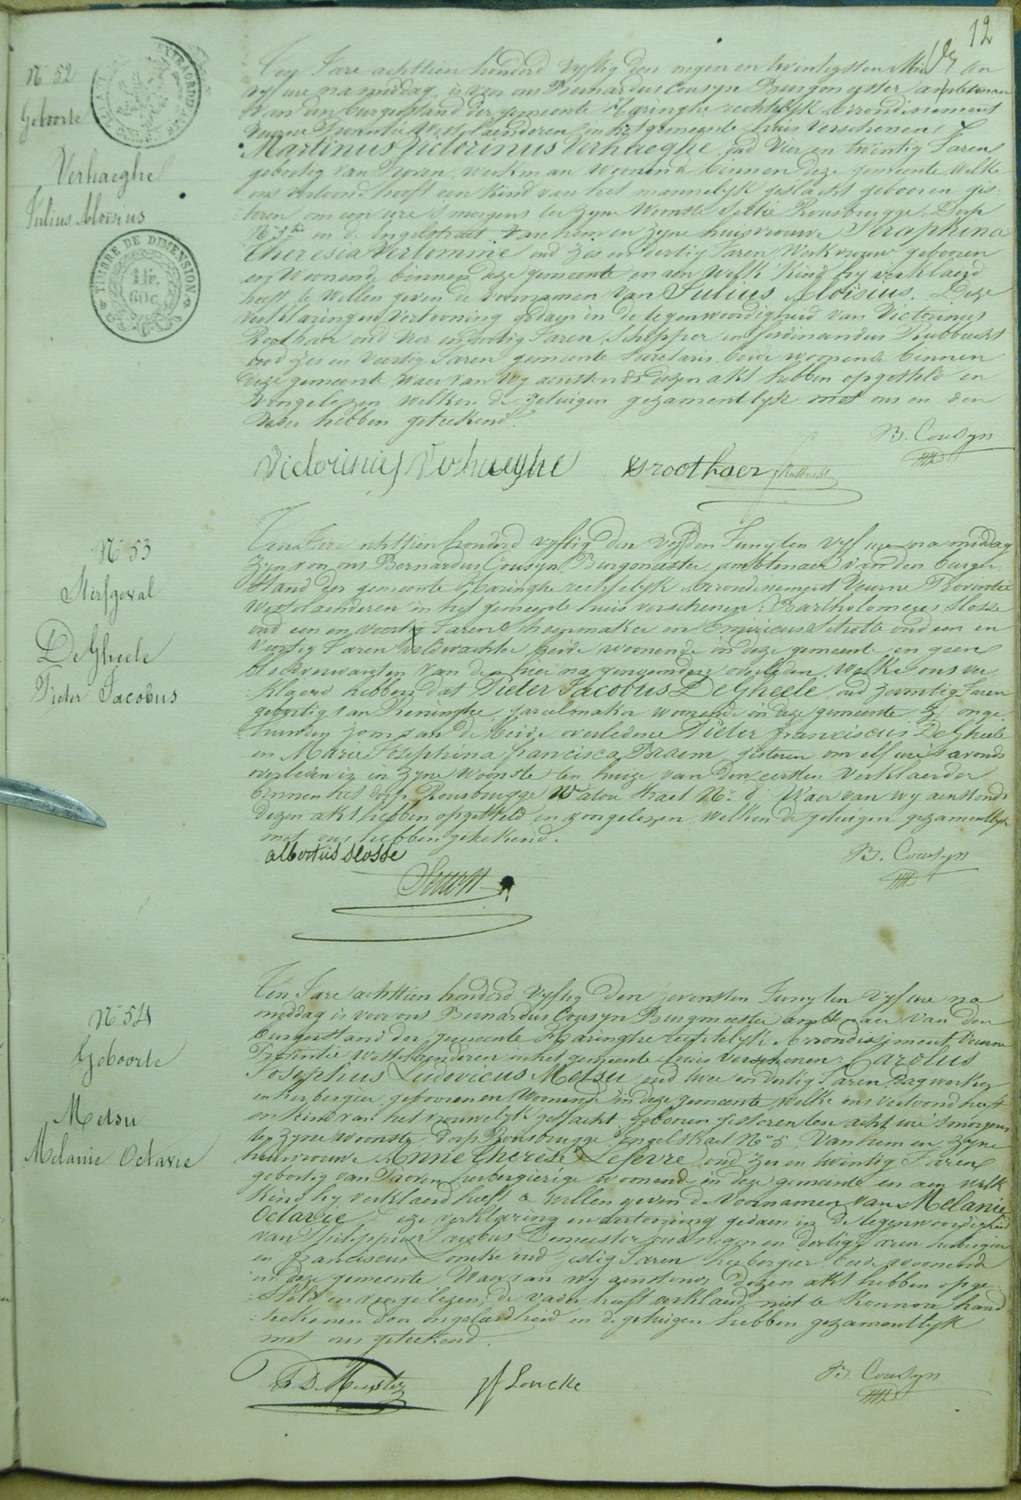 12
N° 52
Geboorte
Verhaeghe
Julius Aloisius
TIMBRE DE DIMENSION
Ten Jare achttien honderd vyftig den negen en twintigsten Mei ten
vyf ure namiddag, is voor ons Bernardus Cousyn Burgmeester ambtenaer
van den burgerstand der gemeente Haringhe rechtelyk Arrondissement
Veurne Provintie Westvlaenderen in het gemeente huis verschenen
Martinus Victorinus Verhaeghe, oud vier en twintig Jaren
geboortig van Proven, werkman woonende binnen deze gemeente welke
ons vertoond heeft een kind van het mannelyk geslacht geboren gis-
teren om een ure s'morgens ter zyne Woonste Sectie Rousbrugge Dorp
in de Engelstraet van hem en zyne huisvrouwe Seraphina
Theresia Verlomme oud zes en dertig Jaren Werkvrouw geboren
en Woonende binnen deze gemeente en aen welk kind hy verklaerd
heeft te willen geven de voornamen van Julius Aloisius. Deze
verklaring en vertooning gedaen in de tegenwoordigheid van Victorinus
Roothaer oud vier en Jaren, Schepper en Ferdinandus
oud zes en veertig Jaren gemeente Secretaris beide woonende binnen
deze gemeente waer van wy aenstonds dezen akt hebben opgesteld en
voorgelezen welken de getuigen gezamentlyk met ons en den
Vader hebben geteekend.
B. Cousyn
Victorinus Verhaeghe Groothaer
N° 53
Sterfgeval
De Gheele
Pieter Jacobus
Ten Jare achttien honderd vyftig den vyfden Juny ten vyf ure namiddag
zyn voor ons Bernardus Cousyn Burgmeester ambtenaer van den burger-
stand der gemeente Haringhe rechtelyk Arrondissement Veurne Provintie
Westvlaenderen in het gemeente huis verschenen: Bartholomeus Slosse
oud een en veertig Jaren Schoenmaker en oud een en
veertig Jaren veldwachter beide woonende in deze gemeente en geen
bloedverwanten van de hier na genoemden overleden, welke ons ver-
klaerd hebben dat Pieter Jacobus De Gheele oud zeventig Jaren
geboortig van Reninghe, woonende in deze gemeente onge-
huwden zoon van de beide overledene Pieter Franciscus De Gheele
en Marie Josephina Francisca Braem, gisteren om elf ure s'avonds
overleden is in zyne Woonste ten huize van den eersten Verklaerder
binnen het dorp Rousbrugge Watou straet N° 8 Waer van wy aenstonds
dezen akt hebben opgesteld en voorgelezen Welken de getuigen gezamentlyk
met ons hebben geteekend.
albertus slosse
B. Cousyn
N° 54
Geboorte
Metsu
Melanie Octavie
Ten Jare achttien honderd vyftig den zevensten Juny ten vyf ure na
middag is voor ons Bernardus Cousyn Burgmeester ambtenaer van den
burgerstand der gemeente Haringhe rechtelyk Arrondissement Veurne
Provintie Westvlaenderen in het gemeente huis verschenen: Carolus
Josephus Ludovicus Metsu, oud twee en dertig Jaren Dagwerker
en herbergier, geboren en Woonende in deze gemeente welke ons vertoond heeft
een kind van het vrouwelyk geslacht geboren gisteren ten acht ure s'morgens
ter zyne woonste, dorp Rousbrugge Engelstraet N° 5, Van hem en zyne
huisvrouwe Anne Therese Lefevre, oud zes en twintig Jaren
geboortig van Proven herbergierige woonende in deze gemeente en aen welk
kind hy verklaerd heeft te willen geven de voornamen van Melanie
Octavie, deze verklaring en vertooning gedaen in de tegenwoordigheid
van Philippus Jacobus Demeester oud negen en dertig Jaren herbergier
en Franciscus Loncke oud Jaren herbergier beide woonende
in deze gemeente Waer van wy aenstonds dezen akt hebben opge-
steld en voorgelezen, de vader heeft verklaerd niet te kunnen hand-
teekenen door ongeleerdheid en de getuigen hebben gezamentlyk
met ons geteekend.
D Meester f Loncke
B. Cousyn